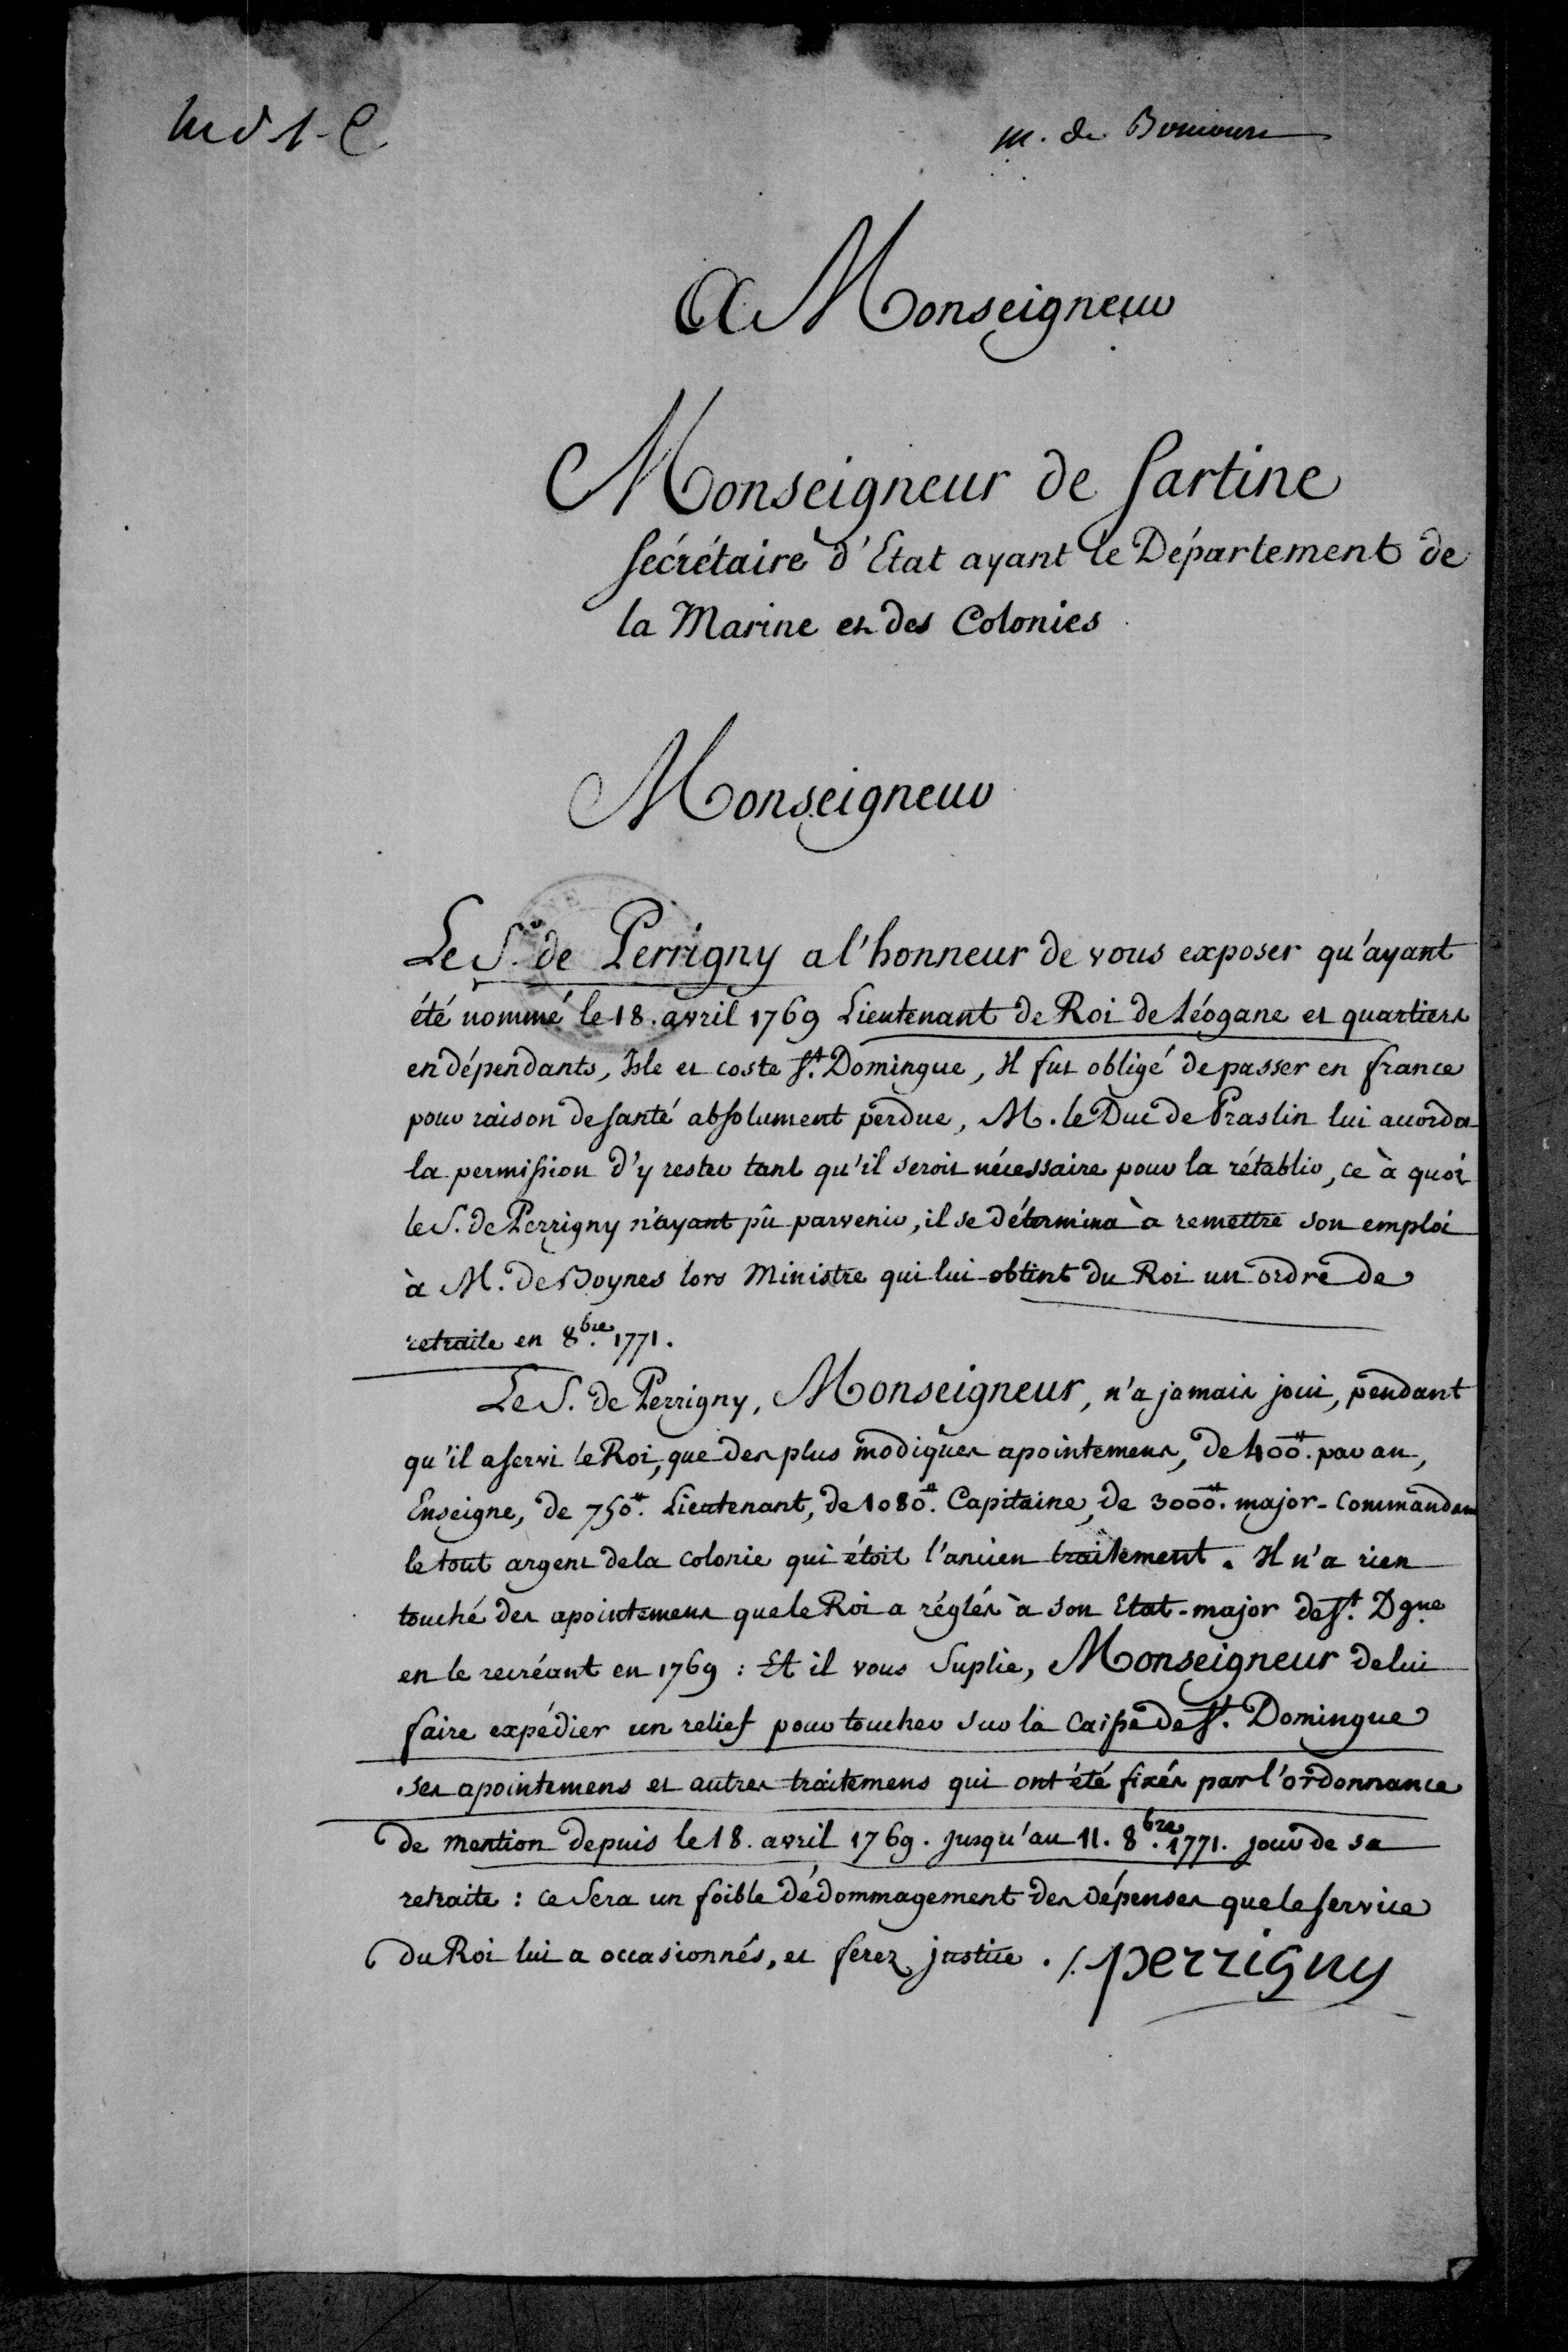 M. de
A Monseigneur
Monseigneur de Sartine
Secrétaire d'Etat ayant le Département de
la Marine et des Colonies
Monseigneur
Le S.r de Perrigny a l'honneur de vous exposer qu'ayant
été nommé le 18. avril 1769 Lieutenant de Roi de Léogane et quartiers
en dépendants, Isle et coste S.t Domingue, Il fut obligé de passer en france
pour raison de santé absolument perdue, M. le Duc de Praslin lui accorda
la permission d'y rester tant qu'il seroit nécessaire pour la rétablir, ce à quoi
le S. de Perrigny n'ayant pû parvenir, il se détermina à remettre son emploi
à M. de Boynes lors Ministre qui lui obtint du Roi un ordre de
retraite en 8.bre 1771.
Le S. de Perrigny, Monseigneur, n'a jamais joui, pendant
qu'il a servi le Roi, que des plus modiques apointemens, de 400.₶ par an,
Enseigne, de 750.₶ Lieutenant, de 1080.₶ Capitaine, de 3000.₶ major-Commandant
le tout argent de la colonie qui étoit l'ancien traitement. Il n'a rien
touché des apointemens que le Roi a réglés à son Etat-major de S.t Dgue
en le recréant en 1769 : Et il vous Suplie, Monseigneur de lui
faire expédier un relief pour toucher sur la Caisse de S.t Domingue
ses apointemens et autres traitemens qui ont été fixés par l'ordonnance
de mention depuis le 18. avril 1769. jusqu'au 11. 8.bre 1771. jour de sa
retraite : ce Sera un foible dédommagement des dépenses que le service
du Roi lui a occasionnés, et ferez justice ./. perrigny